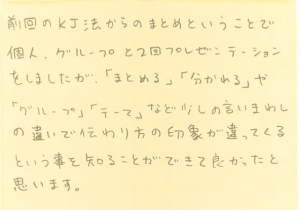 前回のKJ法からのまとめということで
個人、グループと2回プレゼンテーション
をしましたが、「まとめる」「分かれる」や
「グループ」「テーマ」など少しの言いまわし
の違いで伝わり方の印象が違ってくる
という事を知ることができて良かったと
思います。